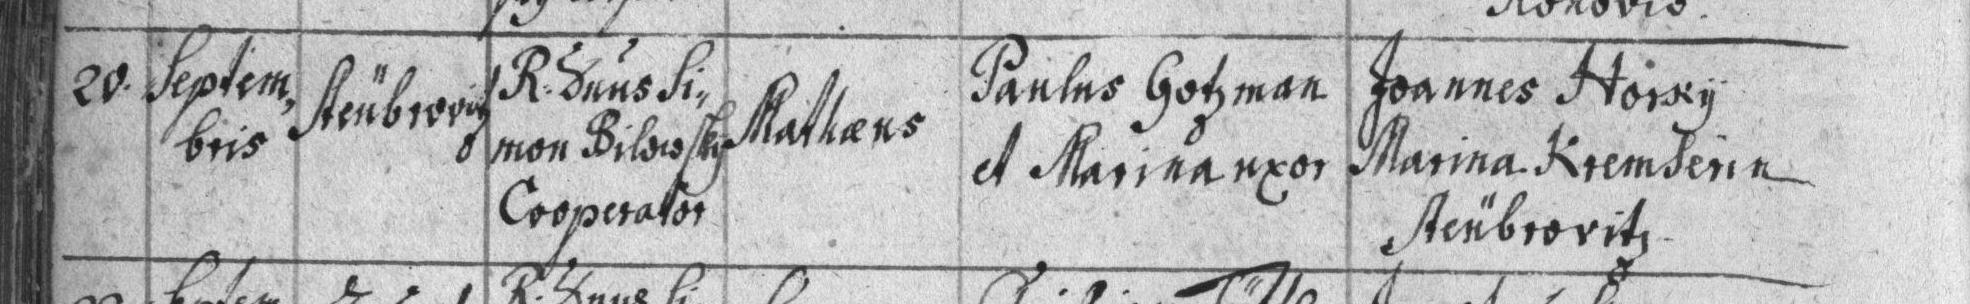 20. Septem,
bris
Steübrovitz
R. Dnus Si,,
mon Bilowsky
Cooperator
Mathæus
Paulus Gotzman
et Marina uxor
Joannes Horský
Marina Kremserin
Steübrovitz
R. Dnus Si,,